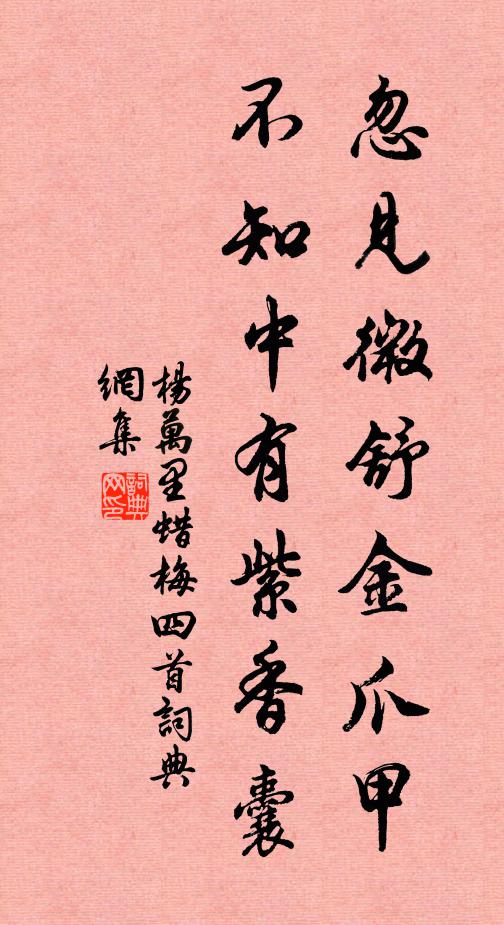 忽見微舒金爪甲
不知中有紫香囊
楊萬里蜡梅四首詞典
網集
詞典
网印